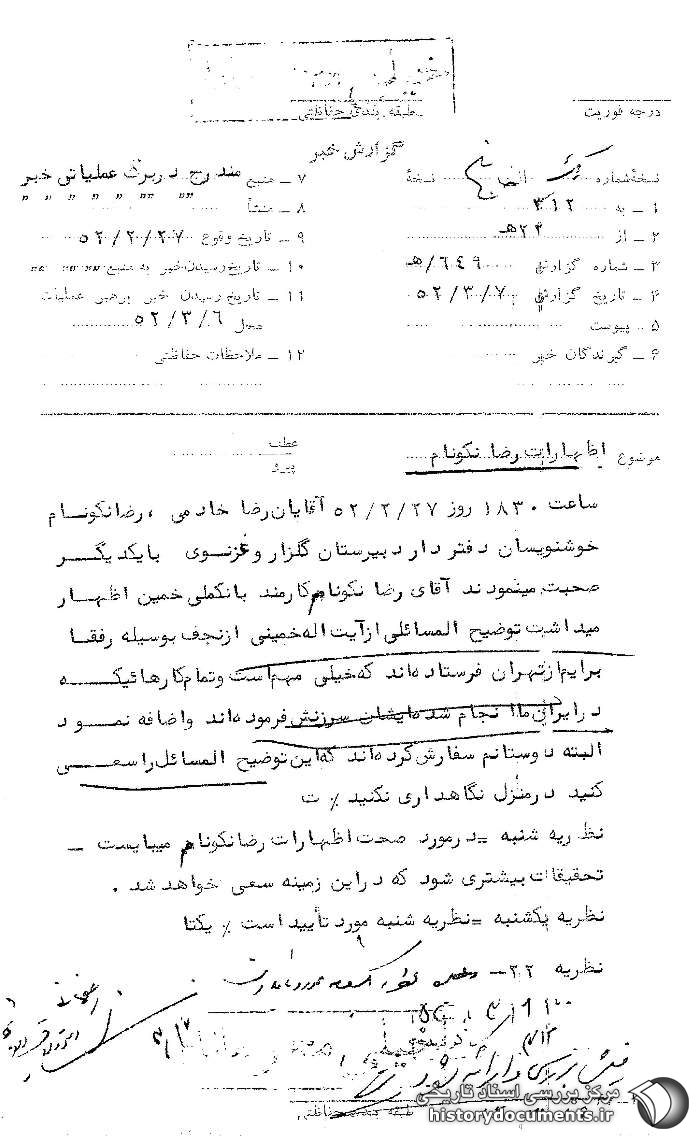 خیلی
طبقه بندی حفاظتی
درجه فوریت
گزارش خبر
نسخهٔ شماره از نسخهٔ
۱ ـ به ۳۱۲
۲ ـ از ۲۲هـ
۳ ـ شماره گزارش ۶۴۹/هـ
۴ ـ تاریخ گزارش ۵۲/۳/۷
۵ ـ پیوست
۶ ـ گیرندگان خبر
۷ ـ منبع مندرج در برگ عملیاتی خبر
۸ ـ منشأ " " " " " " "
۹ ـ تاریخ وقوع ۵۲/۲/۲۷
۱۰ ـ تاریخ رسیدن خبر به منبع " " " "
۱۱ ـ تاریخ رسیدن خبر برهبر عملیات
محل ۵۲/۳/۶
۱۲ ـ ملاحظات حفاظتی
موضوع اظهارات رضا نکونام
عطف
پیرو
ساعت ۱۸۳۰ روز ۵۲/۲/۲۷ آقایان رضا خادمی ، رضا نکونام
خوشنویسان دفتردار دبیرستان گلزار و غزنوی با یکدیگر
صحبت مینمودند آقای رضا نکونام کارمند بانک ملی خمین اظهار
میداشت توضیح المسائلی از آیت اله خمینی از نجف بوسیله رفقا
برایم از تهران فرستاده اند که خیلی مهم است و تمام کارهائیکه
در ایران ما انجام شده ایشان سرزنش فرموده اند و اضافه نمود
البته دوستانم سفارش کرده اند که این توضیح المسائل را سعی
کنید در منزل نگاهداری نکنید ٪ ت
نظریه شنبه = در مورد صحت اظهارات رضا نکونام میبایست ـ
تحقیقات بیشتری شود که در این زمینه سعی خواهد شد .
نظریه یکشنبه = نظریه شنبه مورد تأیید است ٪ یکتا
نظریه ۲۲ ـ
۳/۷
طبقه بندی حفاظتی
مرکز بررسی اسناد تاریخی
historydocuments.ir